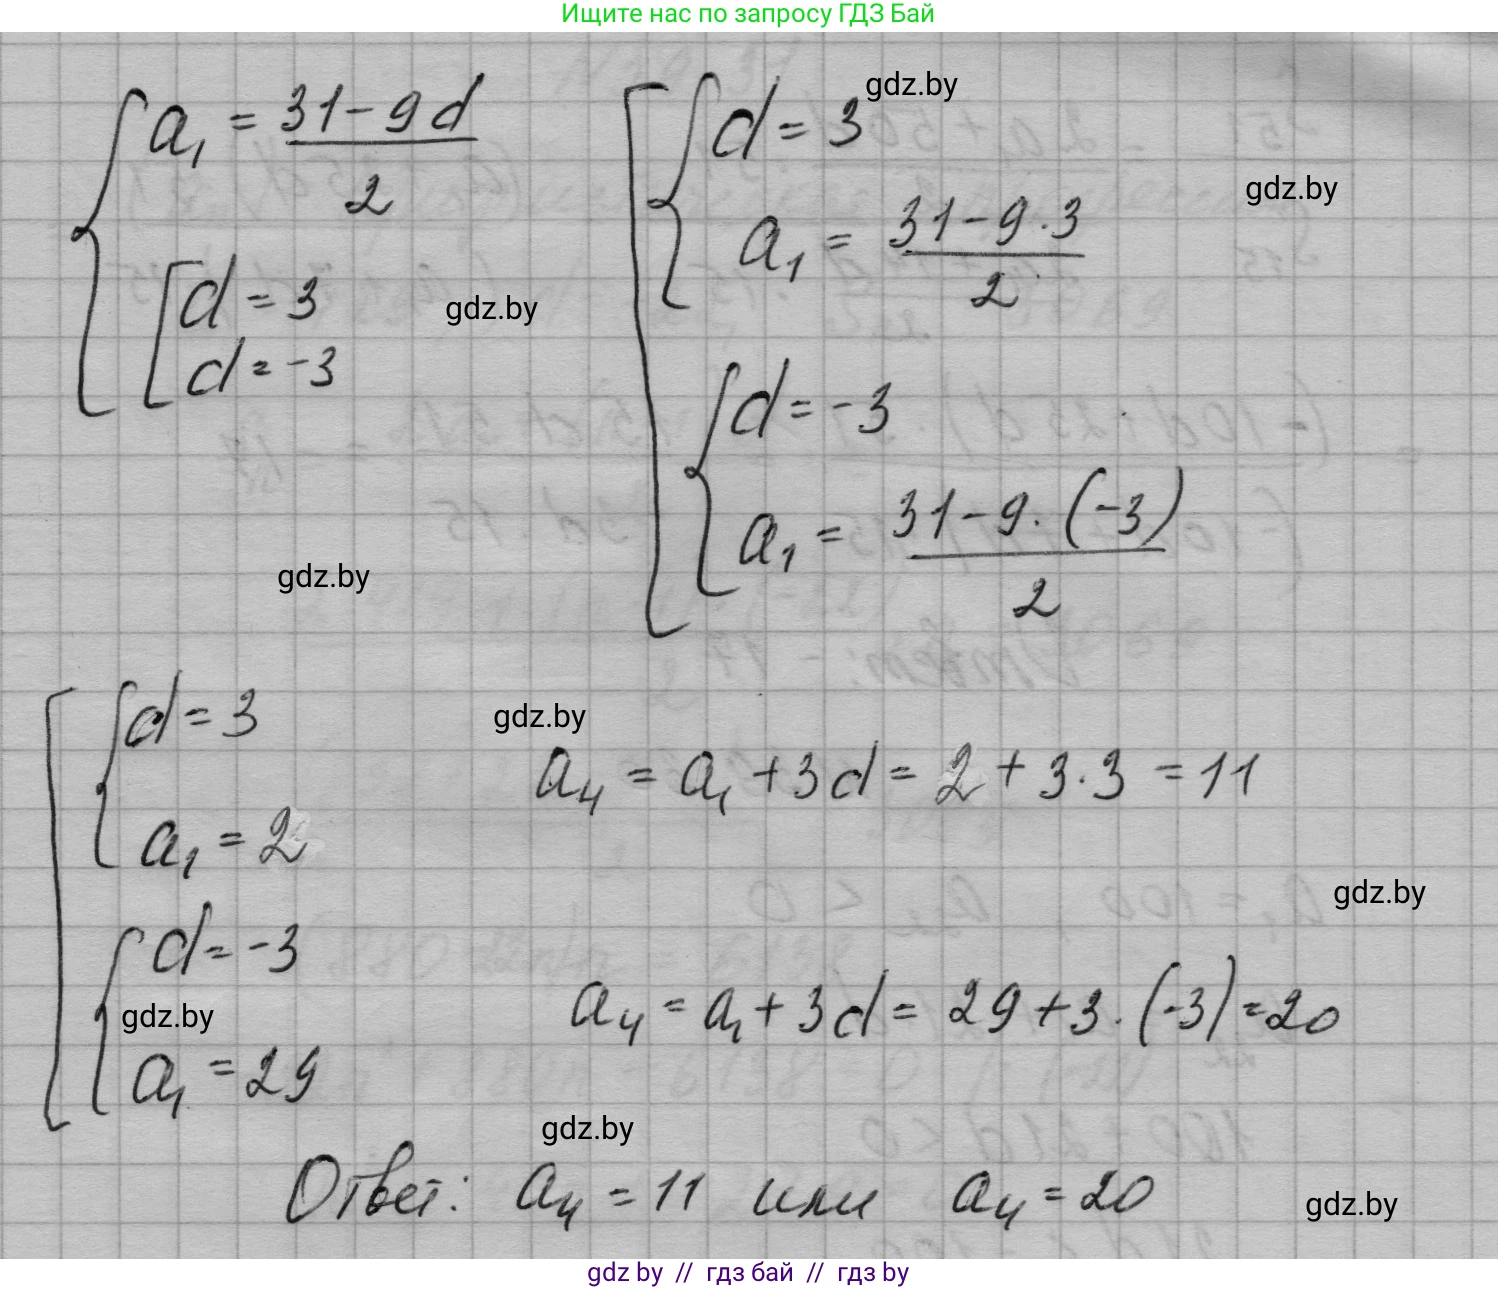 Ищите нас по запросу ГДЗ Бай
a₁ = (31 - 9d)/2
d = 3
d = -3
gdz.by
d = 3
gdz.by
a₁ = (31 - 9·3)/2
gdz.by
d = -3
a₁ = (31 - 9·(-3))/2
gdz.by
d = 3
a₁ = 2
gdz.by
a₄ = a₁ + 3d = 2 + 3·3 = 11
gdz.by
d = -3
gdz.by
a₁ = 29
a₄ = a₁ + 3d = 29 + 3·(-3) = 20
gdz.by
Ответ: a₄ = 11 или a₄ = 20
gdz.by
gdz by // гдз бай // гдз by